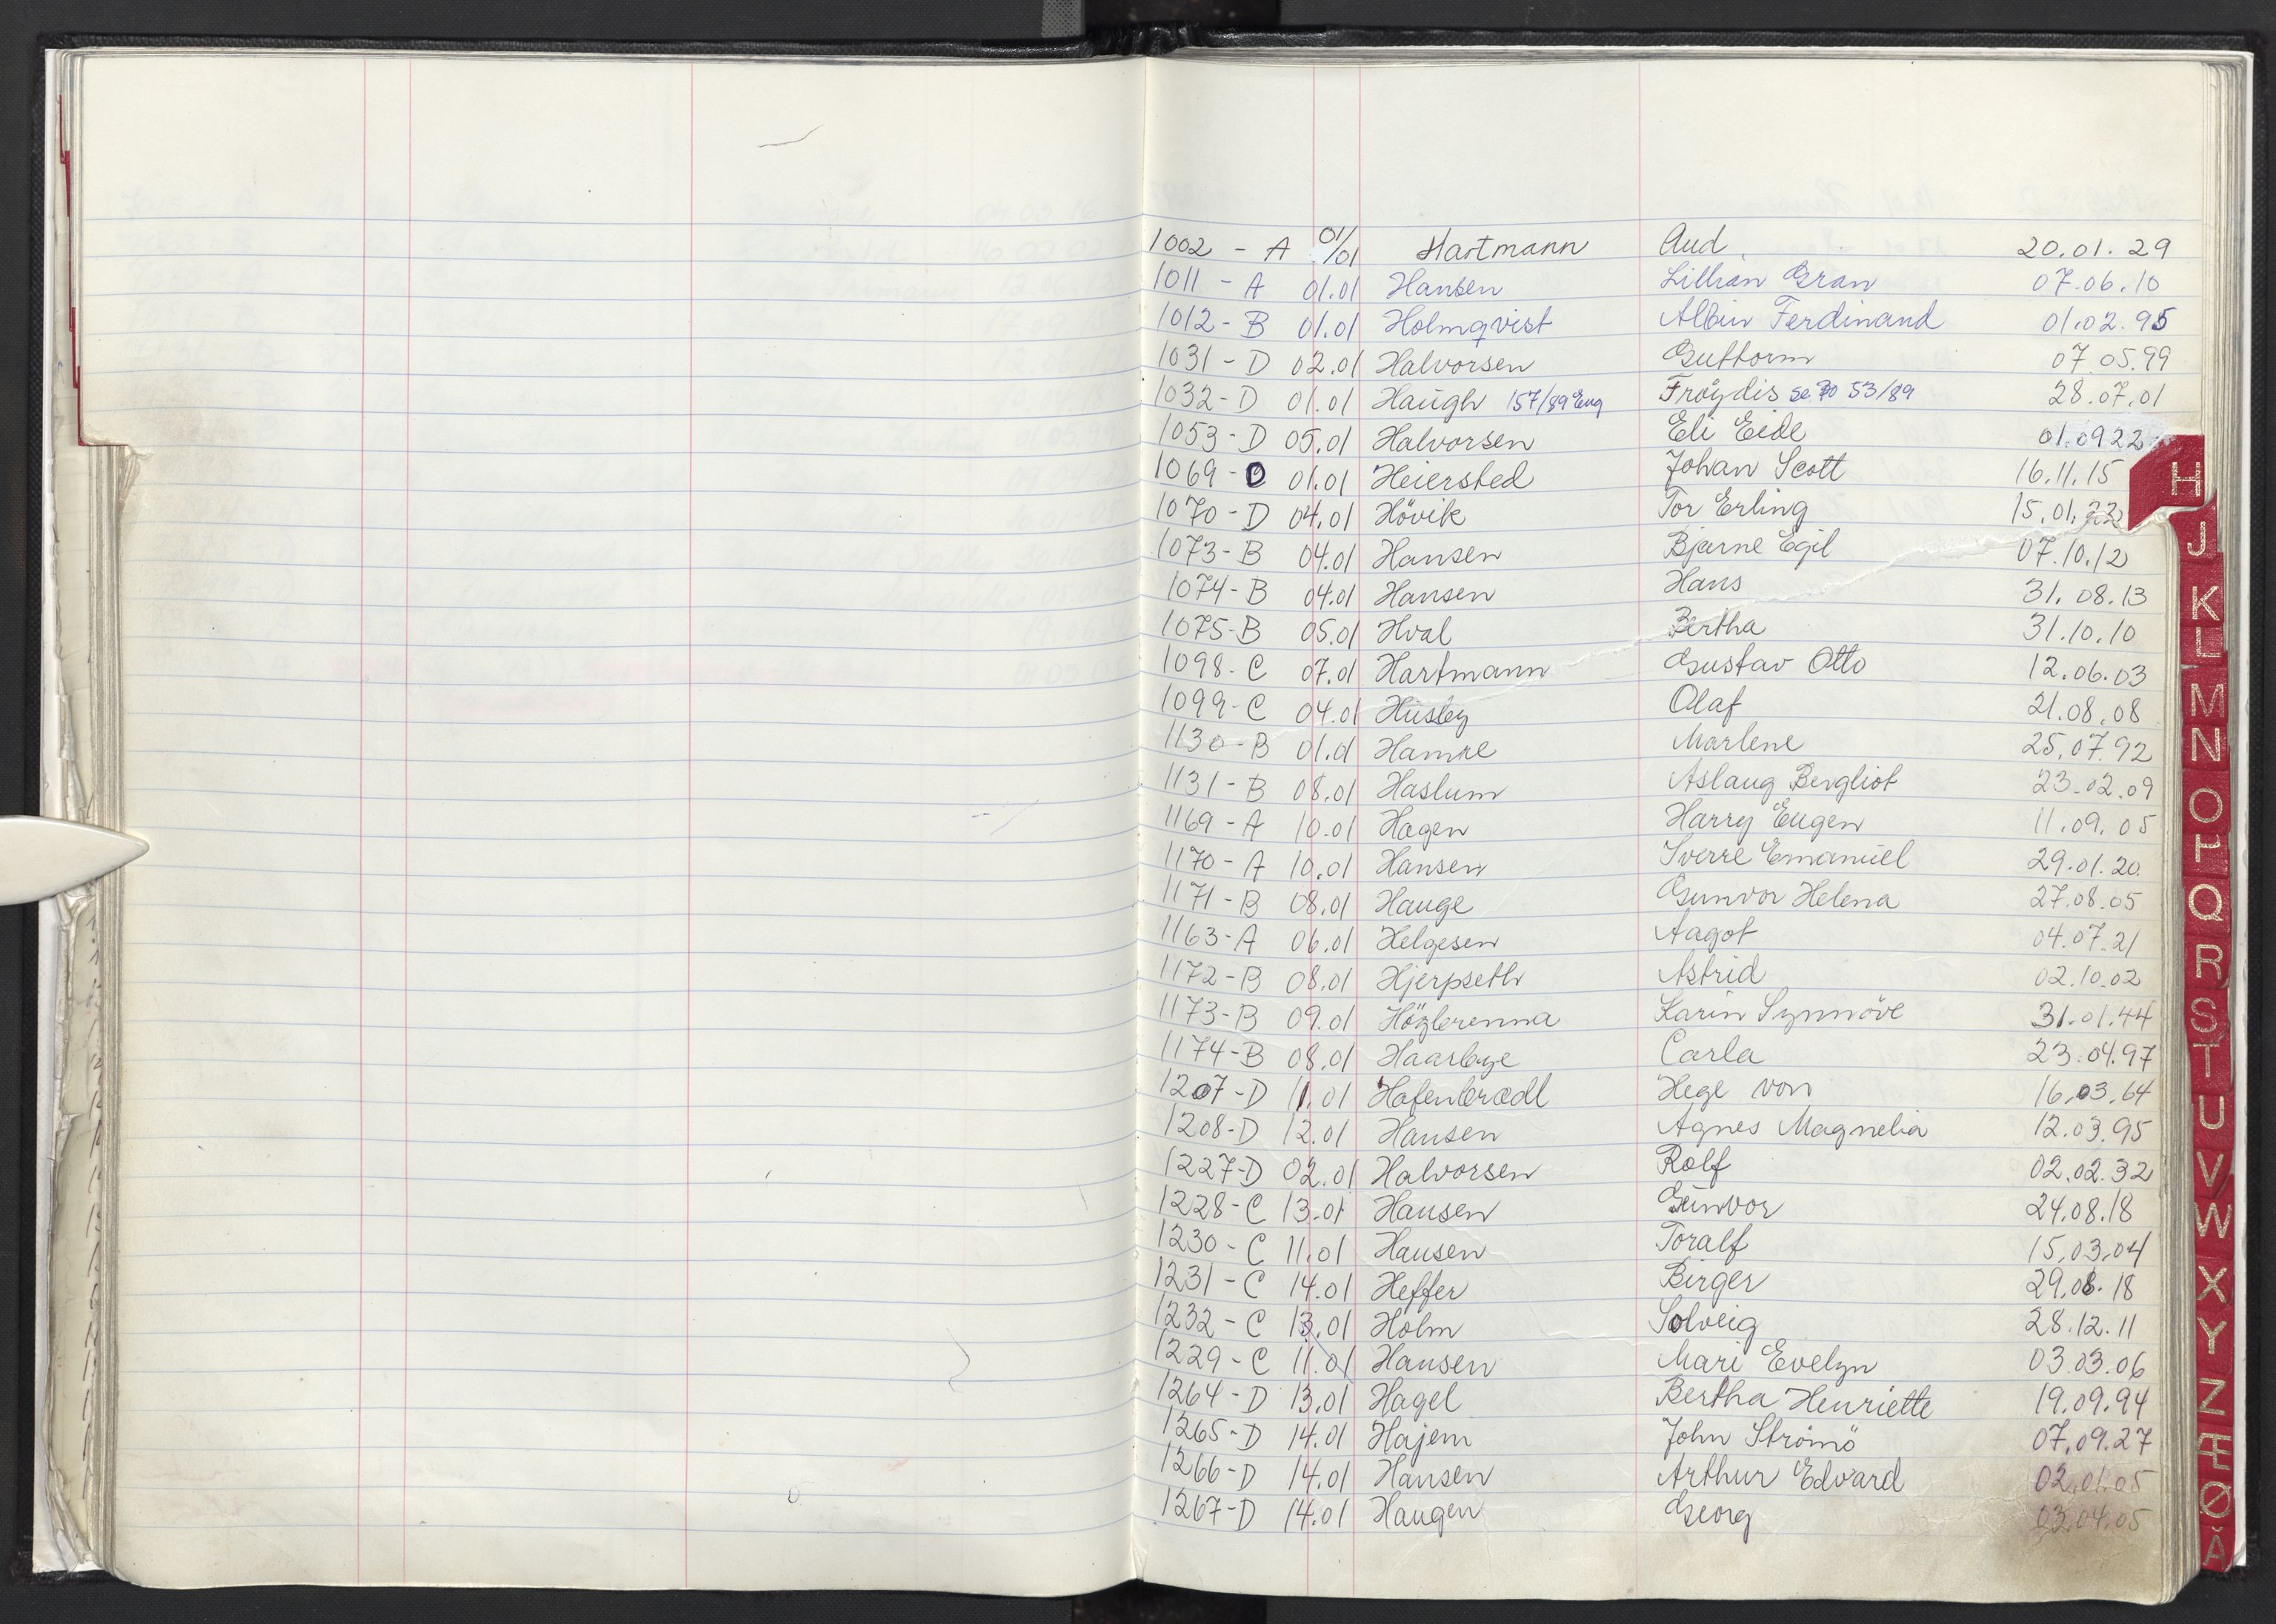 1002 - A 01/01 Hartmann Aud 20.01.29
1011 - A 01.01 Hansen Lillian Gran 07.06.10
1012 - B 01.01 Holmqvist Albin Ferdinand 01.02.95
1031 - D 02.01 Halvorsen Guttorm 07.05.99
1032 - D 01.01 Haugh 157/89 Eug Frøydis se 53/89 28.07.01
1053 - D 05.01 Halvorsen Eli Eide 01.09.22
1069 - D 01.01 Heiersted Johan Scott 16.11.15
1070 - D 04.01 Hövik Tor Erling 15.01.22
1073 - B 04.01 Hansen Bjarne Egil 07.10.12
1074 - B 04.01 Hansen Hans 31.08.13
1075 - B 05.01 Hval Bertha 31.10.10
1098 - C 07.01 Hartmann Gustav Otto 12.06.03
1099 - C 04.01 Husby Olaf 21.08.08
1130 - B 01.01 Hamre Marlene 25.07.92
1131 - B 08.01 Haslum Aslaug Bergliot 23.02.09
1169 - A 10.01 Hagen Harry Eugen 11.09.05
1170 - A 10.01 Hansen Sverre Emanuel 29.01.20.
1171 - B 08.01 Hauge Gunvor Helena 27.08.05
1163 - A 06.01 Helgesen Aagot 04.07.21
1172 - B 08.01 Hjerpseth Astrid 02.10.02
1173 - B 09.01 Karin Synnöve 31.01.44
1174 - B 08.01 Haarbye Carla 23.04.97
1207 - D 11.01 Hafenbradl Hege von 16.03.64
1208 - D 12.01 Hansen Agnes Magnelia 12.03.95
1227 - D 02.01 Halvorsen Rolf 02.02.32
1228 - C 13.01 Hansen Gunvor 24.08.18
1230 - C 11.01 Hansen Toralf 15.03.04
1231 - C 14.01 Heffer Birger 29.08.18
1232 - C 13.01 Holm Solveig 28.12.11
1229 - C 11.01 Hansen Mari Evelyn 03.03.06
1264 - D 13.01 Hagel Bertha Henriette 19.09.94
1265 - D 14.01 Hajem John Strömö 07.09.27
1266 - D 14.01 Hansen Arthur Edvard 02.01.05
1267 - D 14.01 Haugen Georg 03.04.05
H
J
K
L
M
N
O
P
Q
R
S
T
U
V
W
X
Y
Z
Æ
Ø
Å